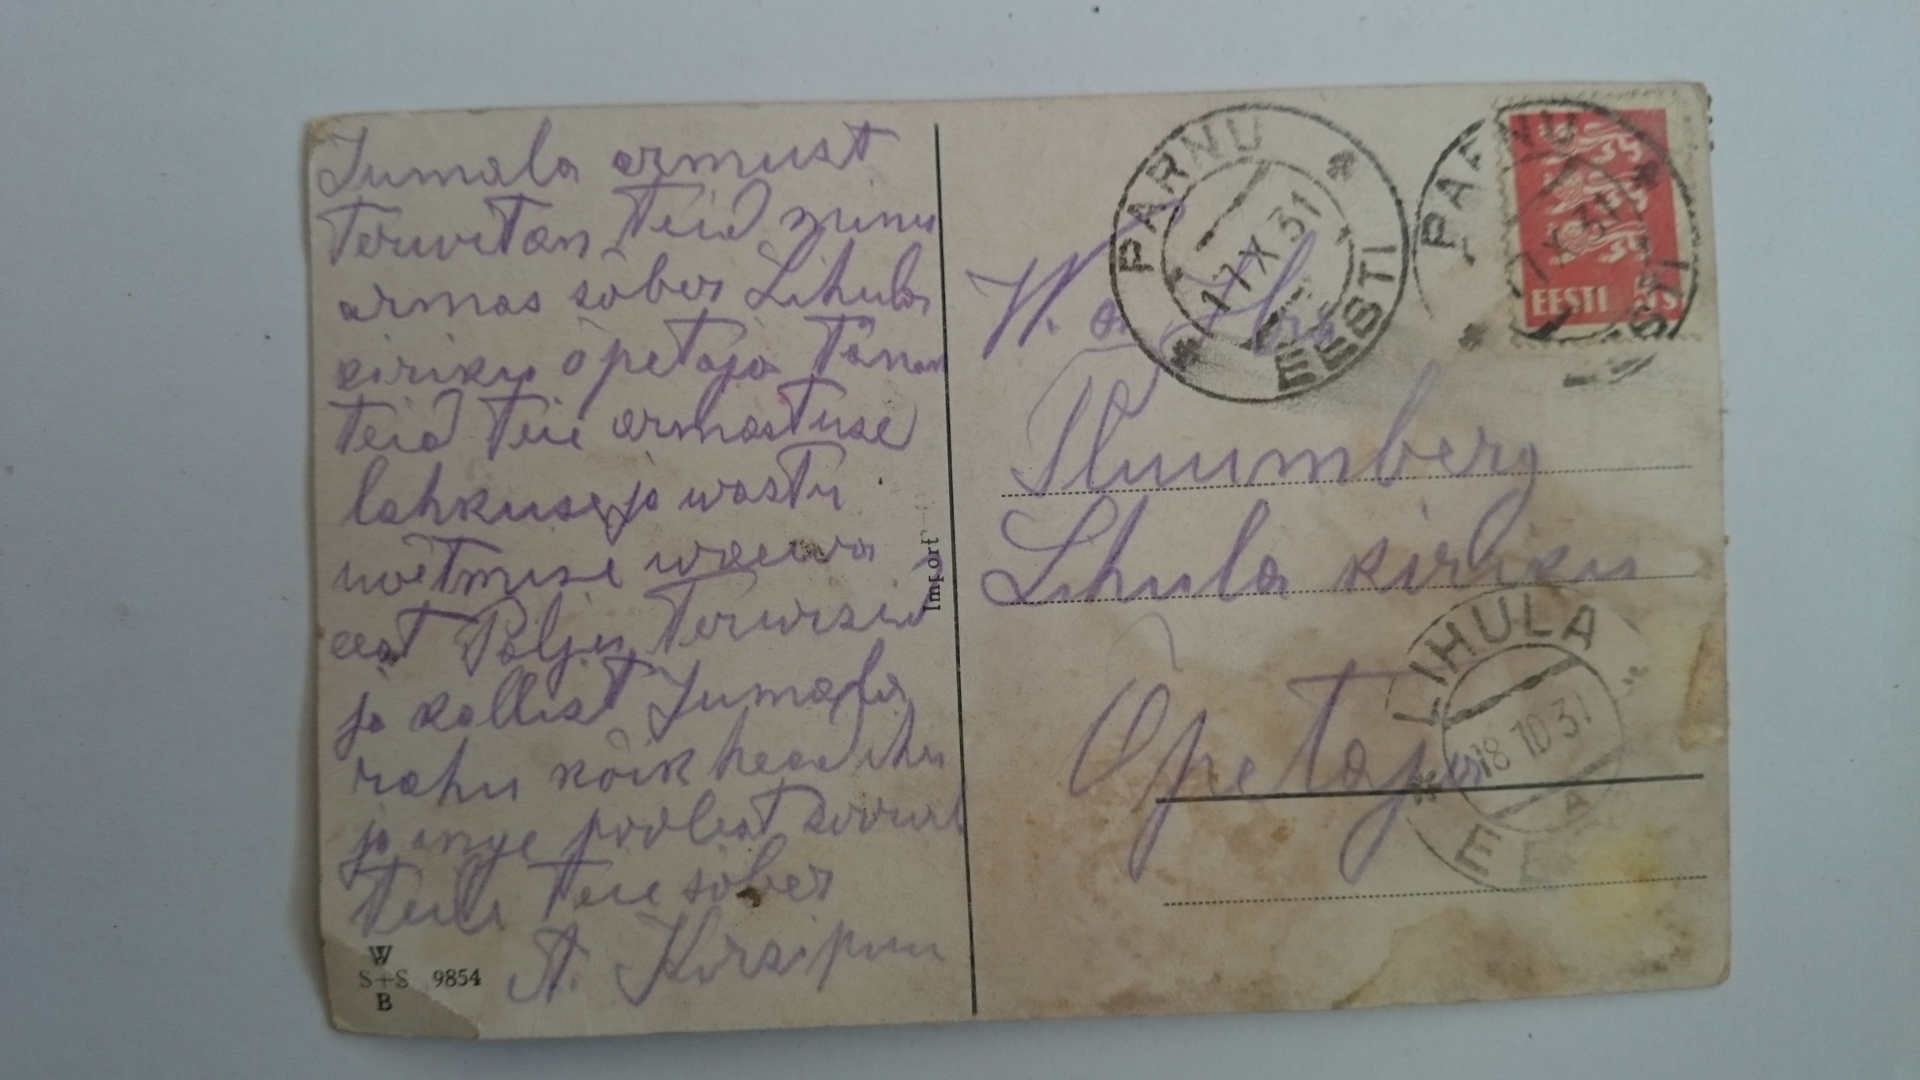 Jumala armust
Terwitan Teid minu
armas sõber Lihula
kiriku õpetaja Tänan
Teid Teie armastuse
lahkuse ja wastu
wõtmise waewa
eest Palju Terwisid
ja kallist Jumala
rahu kõik head ihu
ja inge poolest soowib
Teile Teie sõber
A.
W
S+S 9854
B
Import
PÄRNU
17 X 31
EESTI
PÄRNU
17 X 31
EESTI
EESTI 5 S
W. a. Hrа
Lihula kiriku
Õpetaja
LIHULA
18 10 31